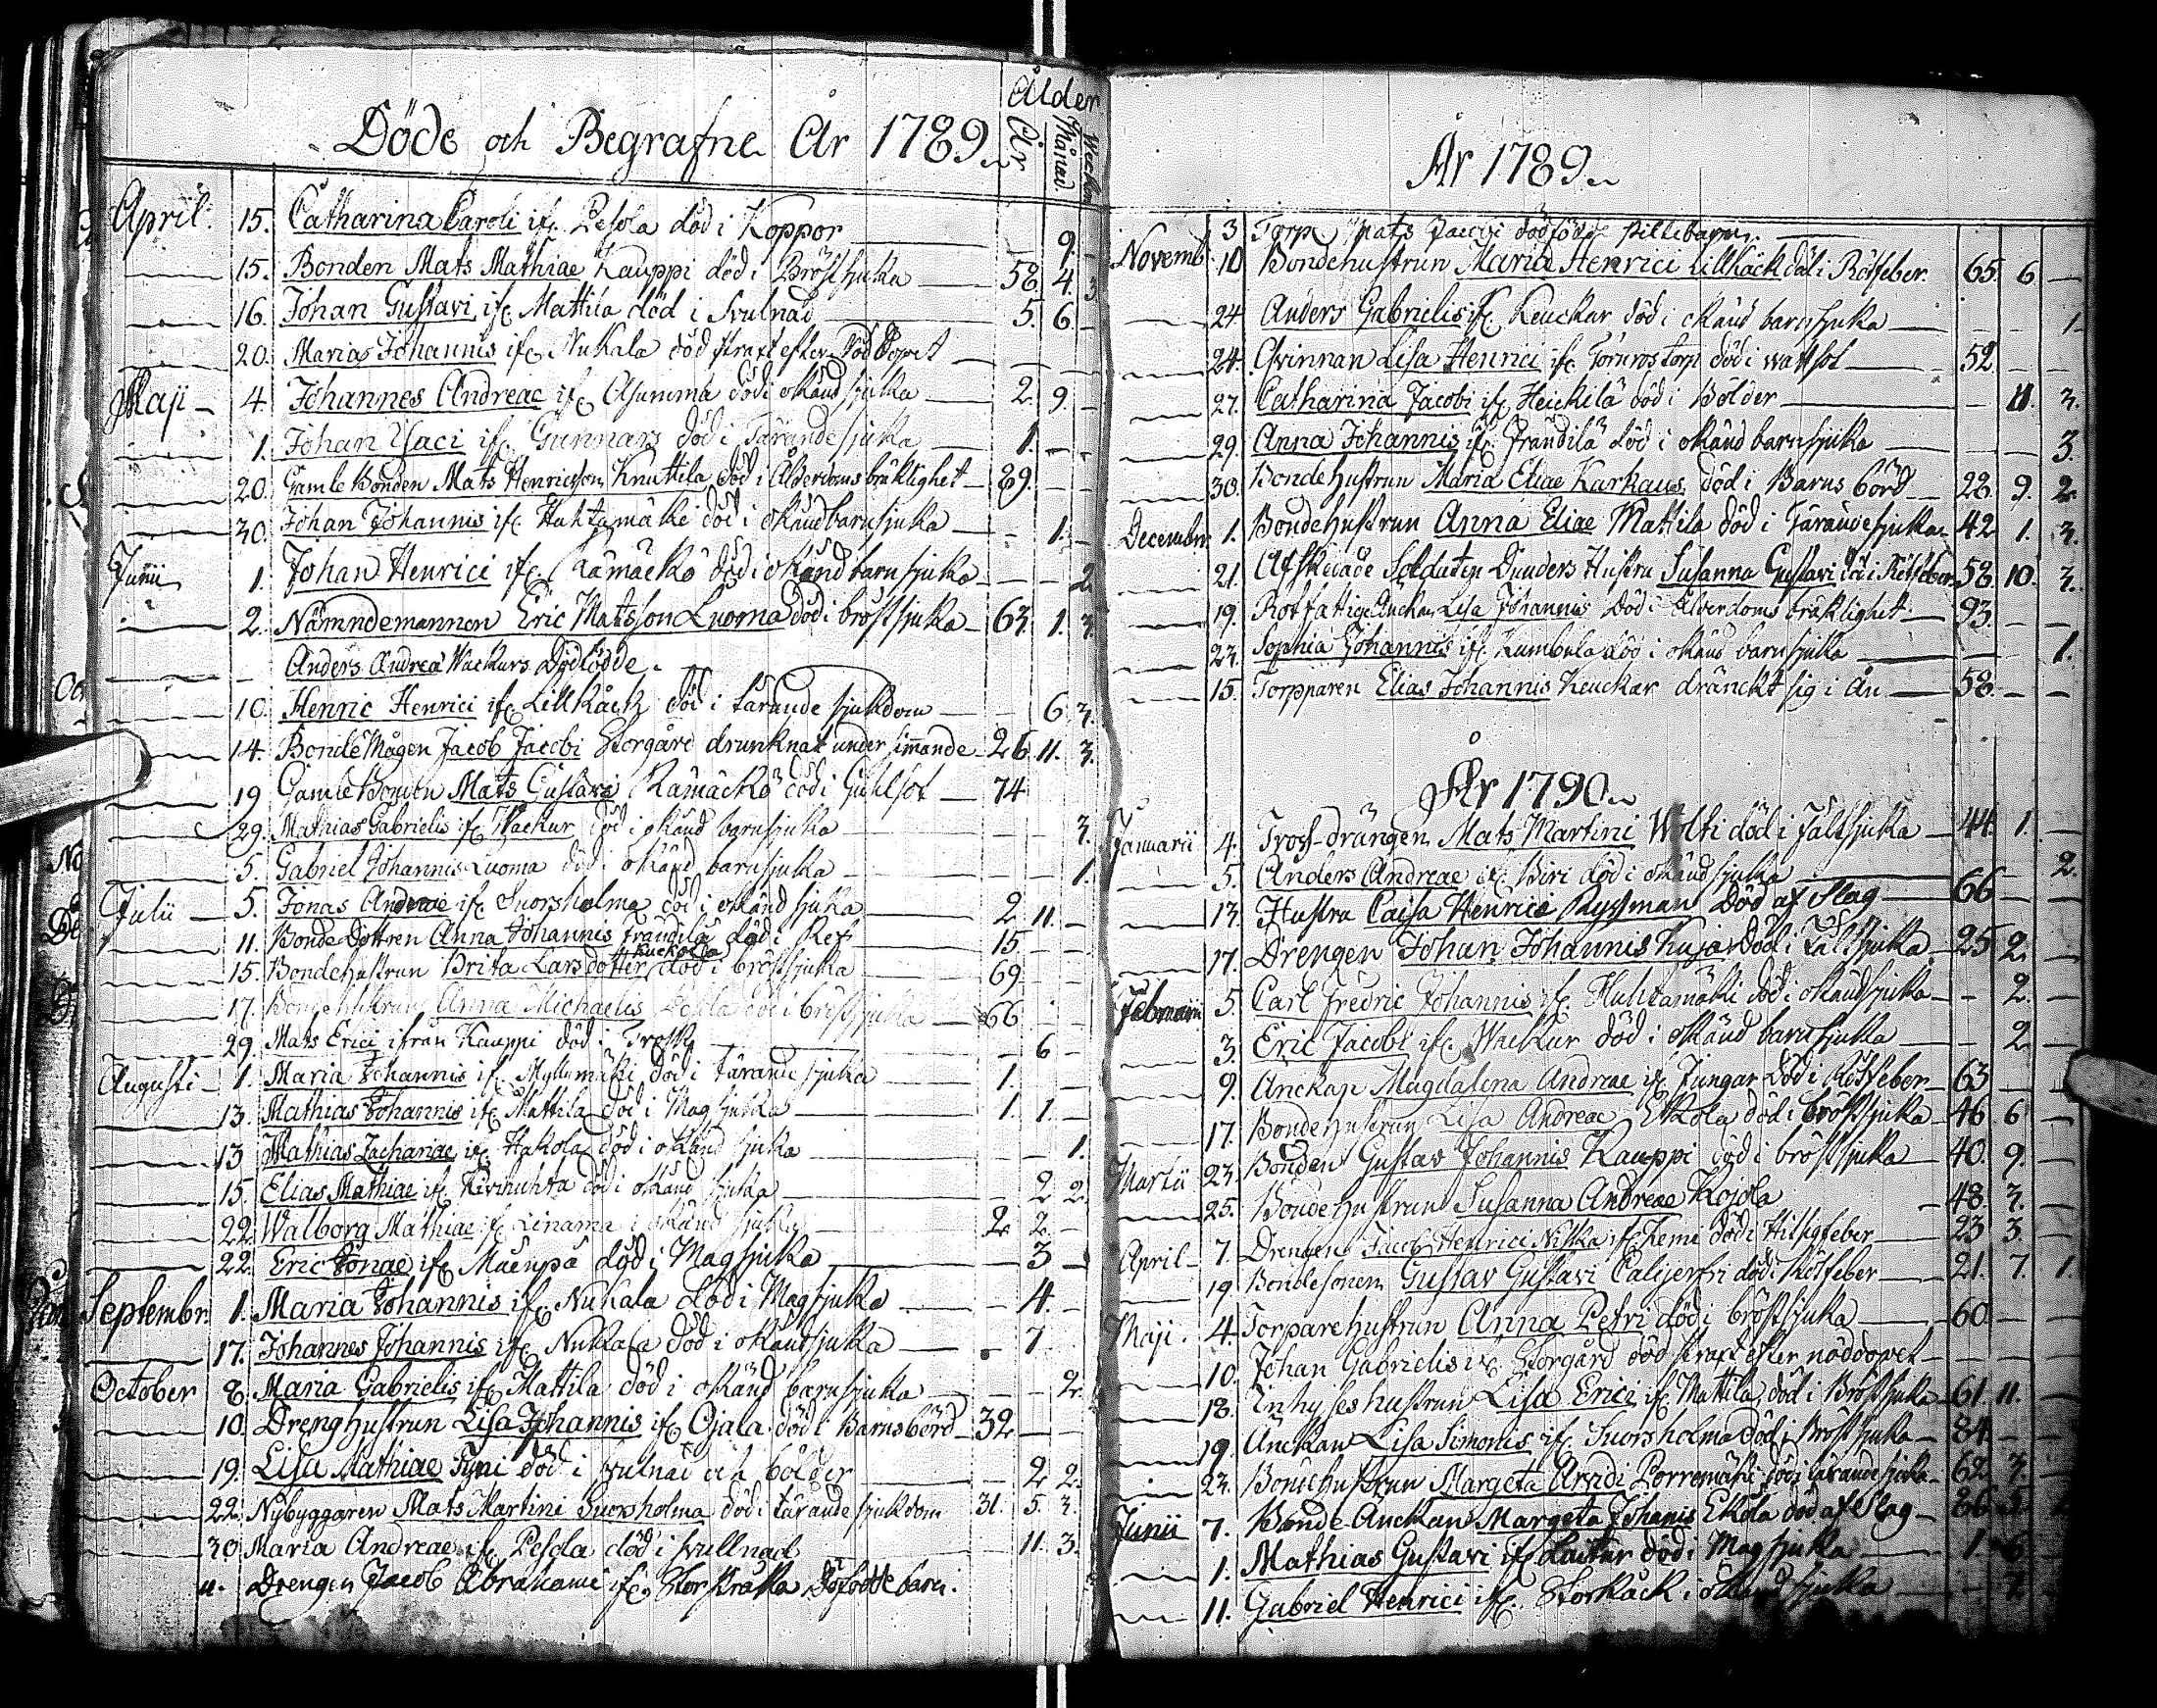 Ålder
Döde och Begrafne År 1789.
År Månad. Weckor
April. 15. Catharina Caroli if. Pesola död i Koppor — 9. –
15. Bonden Mats Mathiae Kauppi död i Bröstsjuka — 58. 4. 3.
16. Johan Gustavi if. Mattila död i svulnad — 5. 6. –
20. Marias Johannis if. Nukala död straxt efter Nöd Dopet —
Maji – 4. Johannes Andreae if. Ajumma död i okänd sjuka — 2. 9. –
1. Johan Isaci if. Gunnars död i Tärande sjuka — 1. – –
20. Gamle Bonden Mats Henricsson Knuttila död i Ålderdoms bräklighet — 89. – –
30. Johan Johannis if. Huhtamäki död i okänd barnsjuka — – 1. –
Junii 1. Johan Henrici if. Rämäckö död i okänd barn sjuka — – – 2
2. Nämndemannen Eric Matsson Luoma död i bröstsjuka — 63. 1. 3.
Anders Andreæ Wackurs Dödfödde.
10. Henric Henrici if. Lillkäck död i tärande sjukdom — – 6 3.
14. Bonde Mågen Jacob Jacobi Storgård drunknat under simmande — 26 11. 3.
19 Gamle Bonden Mats Gustavi Rämäckö död i Guhlsot — 74
29. Mathias Gabrielis if. Wackur död i okänd barnsjuka — 3.
5. Gabriel Johannis Luoma död i okänd barnsjuka — 1.
Julii — 5. Jonas Andreae if. Suorsholma död i okänd sjuka — 2 11. –
11. Bonde Dottren Anna Johannis Frändilä död i Ref — 15 – –
Kuckola
15. Bondehustrun Brita Larsdotter död i bröstsjuka — 69 –
17. Bondehustrun Anna Michaelis Pesola död i bröstsjuka — 66
29. Mats Erici ifrån Kauppi död i Trosk — – 6 –
Augusti – 1. Maria Johannis if. Myllymäki död i tärande sjuka — 1. –
13. Mathias Johannis if. Mattila död i Magsjuka — 1. 1. –
13 Mathias Zachariae if. Hakola död i okänd sjuka — 1.
15. Elias Mathiae if. Kivihuhta död i okänd sjuka — 2 2.
22. Walborg Mathiae if. Linama i okänd sjuka — 2 2 –
22. Eric Jonae if. Mäenpä död i Magsjuka — 3 –
Septembr. 1. Maria Johannis if. Nukala död i Magsjuka — 4. –
17. Johannes Johannis if. Nukala död i okändsjuka — 7
October 8. Maria Gabrielis if. Mattila död i okänd barnsjuka — 2.
10. Dreng hustrun Lisa Johannis if. Ojala död i Barnsbörd — 32
19. Lisa Mathiae Tyni död i svulnad och bölder — 2 2.
22. Nybyggaren Mats Martini Suorsholma död i tärande sjukdom 31. 5. 3.
30 Maria Andreae if. Pesola död i svullnad 11. 3.
u. Drengen Jacob Abrahami if. Storkråka Döfödde barn.
År 1789.
Novemb. 3 Torp. Mats Jacobi dödfödde pillebarn.
10 Bondehustrun Maria Henrici Lillkäck död i Rötfeber. 65. 6 –
24. Anders Gabrielis if. Keuckar död i okänd barnsjuka — 1
24. Qvinnan Lisa Henrici if. Törnros Torp död i wattsot — 52
27. Catharina Jacobi if. Heickilä död i Bölder — – 11. 3.
29. Anna Johannis if. Frändilä död i okänd barnsjuka — 3.
30. Bonde hustrun Maria Eliae Karhaus död i Barns börd — 28. 9. 2
Decembr. 1. Bondehustrun Anna Eliae Mattila död i Tärandesjuka – 42 1. 3.
21. Afskedade Soldaten Dunders Hustru Susanna Gustavi död i Rötfeber 58. 10. 3.
19. Rotfattige Änckan Lisa Johannis Död i Ålderdoms bräklighet — 93. – –
23. Sophia Johannis if. Kumbula död i okänd barnsjuka — 1.
15. Torpparen Elias Johannis Keuckar dränckt sig i Ån — 58. – –
År 1790
Januarii 4. Tross-drängen Mats Martini Wolti död i Fältsjuka — 44. 1. –
5. Anders Andreae if. Biri död i okänd sjuka — 2.
13. Hustru Caisa Henrici Ryssman Död af Slag — 66
17. Drengen Johan Johannis Kuja Död i Fältsjuka — 25 2 –
Februarii 5. Carl Fredric Johannis if. Huhtamäki död i okändsjuka — – 2. –
3. Eric Jacobi if. Wackur död i okänd barnsjuka — – 2
9. Änckan Magdalena Andreae if. Jungar död i Rötfeber — 63 –
17. Bondehustrun Lisa Andreae Ekola död i bröstsjuka — 46 6 –
Martii 23. Bonden Gustav Johannis Kauppi död i bröstsjuka — 40. 9. –
25. Bonde hustrun Susanna Andreae Kojola – 48. 3. –
April – 7. Drengen Jacob Henrici Niska if. Kemi död i Hitsigfeber — 23 3. –
19 Bondesonen Gustav Gustavi Caijerfri död i Rötfeber — 21. 7. 1.
Maji. 4. Torparehustrun Anna Petri död i bröstsjuka — 60. –
10. Johan Gabrielis if. Storgård död straxt efter nöddopet — – –
18. Inhyseshustrun Lisa Erici if. Mattila död i Bröstsjuka — 61. 11. –
19. Änckan Lisa Simonis if. Suorsholma död i Bröstsjuka — 84. – –
23. Bondehustrun Margeta Arvidi Porremäki död i tärande sjuka — 62 3. –
Junii 7. Bonde-Änckan Margeta Johanis Ekola död af Slag — 86 5.
1. Mathias Gustavi if. Laitur död i Magsjuka — 1 6
11. Gabriel Henrici if. Storkäck i okänd sjuka —